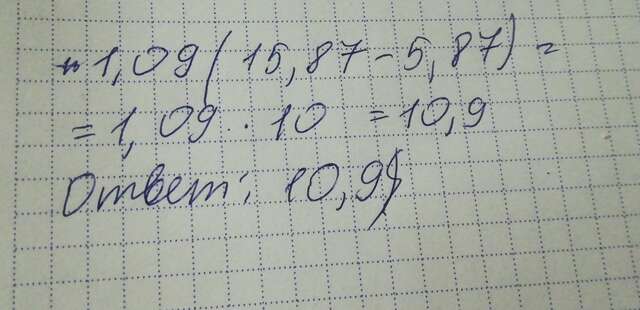 = 1,09 ( 15,87 - 5,87) =
= 1,09 · 10 = 10,9
Ответ: 10,9